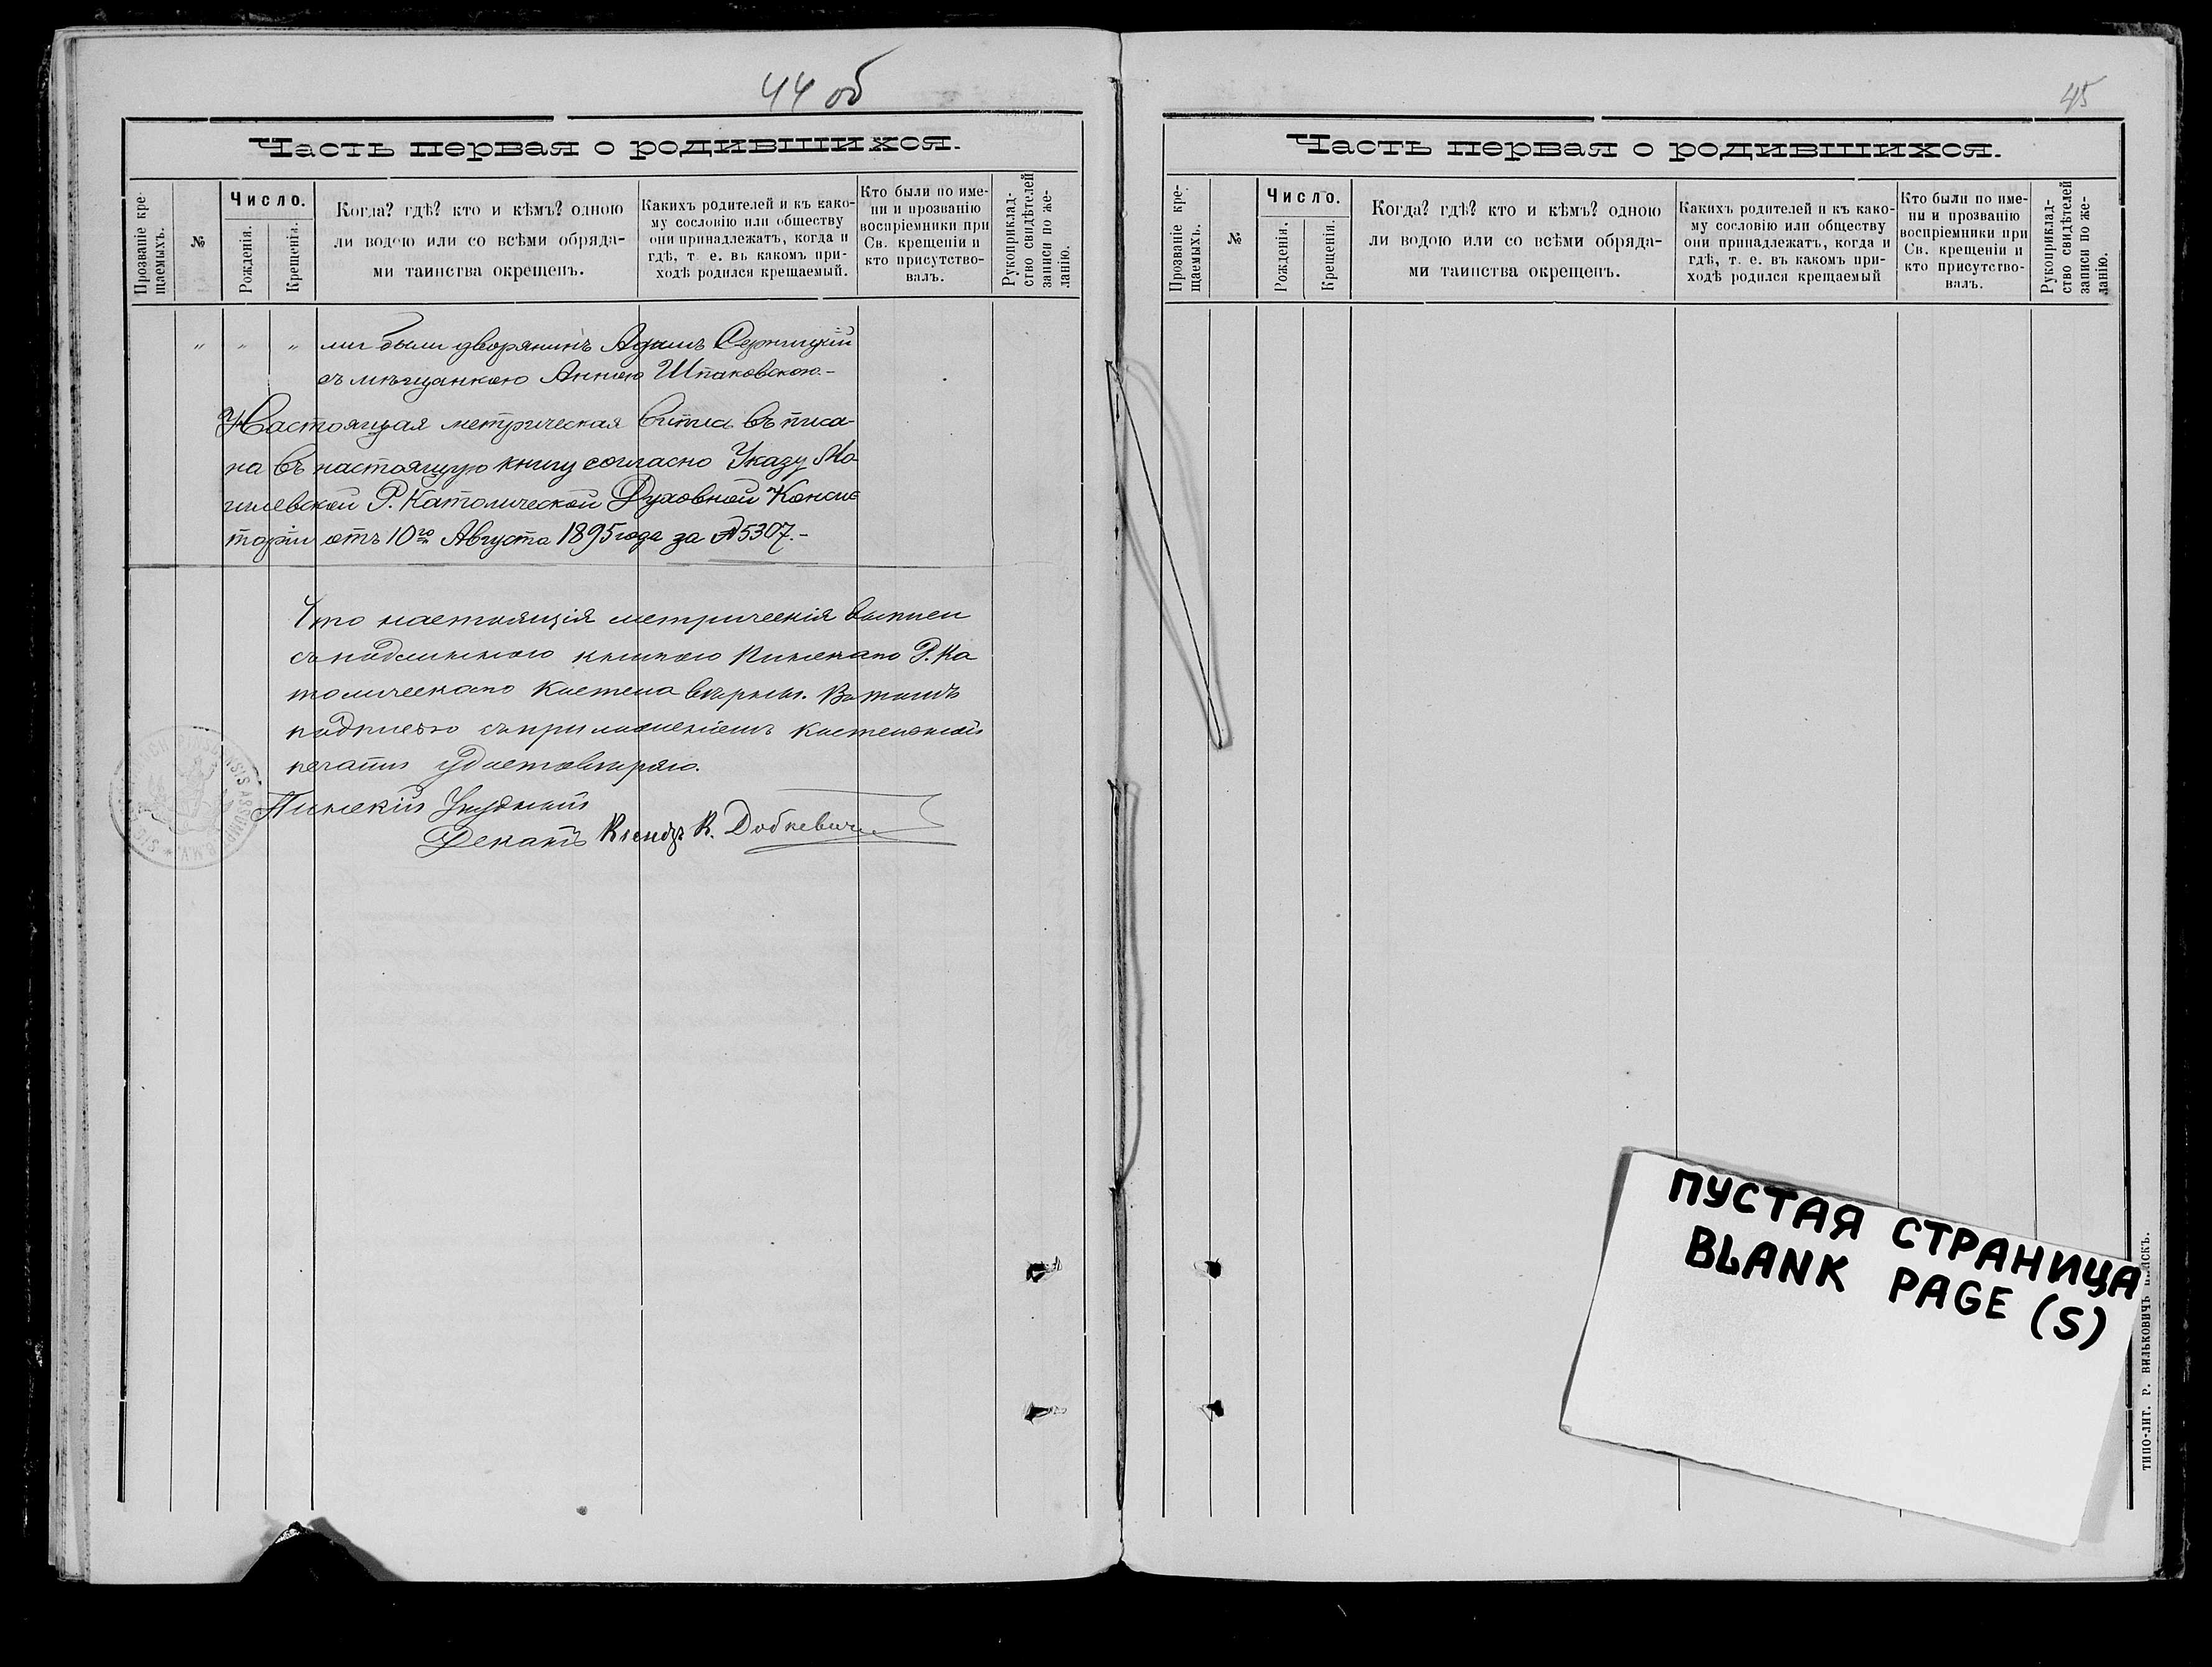 44 об
Часть первая о родившихся.
Прозваніе кре-
щаемыхъ.
№
Число.
Рожденія.
Крещенія.
Когда? гдѣ? кто и кѣмъ? одною
ли водою или со всѣми обряда-
ми таинства окрещенъ.
Какихъ родителей и къ како-
му сословію или обществу
они принадлежатъ, когда и
гдѣ, т. е. въ какомъ при-
ходѣ родился крещаемый.
Кто были по име-
ни и прозванію
воспріемники при
Св. крещеніи и
кто присутство-
валъ.
Рукоприклад-
ство свидѣтелей
записи по же-
ланію.
" " " ми были дворянинъ Адамъ
съ мѣщанкою Анною Шпаковскою.-
Настоящая метрическая выпись въ писа-
на въ настоящую книгу согласно Указу Мо-
гилевской Р. Католической Духовной Консис
торіи отъ 10го Августа 1895 года за №5307.-
Что настоящія метрическія выписи
съ подлинною книгою Пинскаго Р. Ка
толическаго Костела вѣрны. Въ томъ
подписью съ приложеніемъ костельной
печати удостовѣряю.
Пинскій Уѣздный
Деканъ Ксендзъ К. Добкевичъ
45
Часть первая о родившихся.
Прозваніе кре-
щаемыхъ.
№
Число.
Рожденія.
Крещенія.
Когда? гдѣ? кто и кѣмъ? одною
ли водою или со всѣми обряда-
ми таинства окрещенъ.
Какихъ родителей и къ како-
му сословію или обществу
они принадлежатъ, когда и
гдѣ, т. е. въ какомъ при-
ходѣ родился крещаемый
Кто были по име-
ни и прозванію
воспріемники при
Св. крещеніи и
кто присутство-
валъ.
Рукоприклад-
ство свидѣтелей
записи по же-
ланію.
ПУСТАЯ СТРАНИЦА
BLANK PAGE (S)
ТИПО-ЛИТ. Р. ВИЛЬКОВИЧЪ